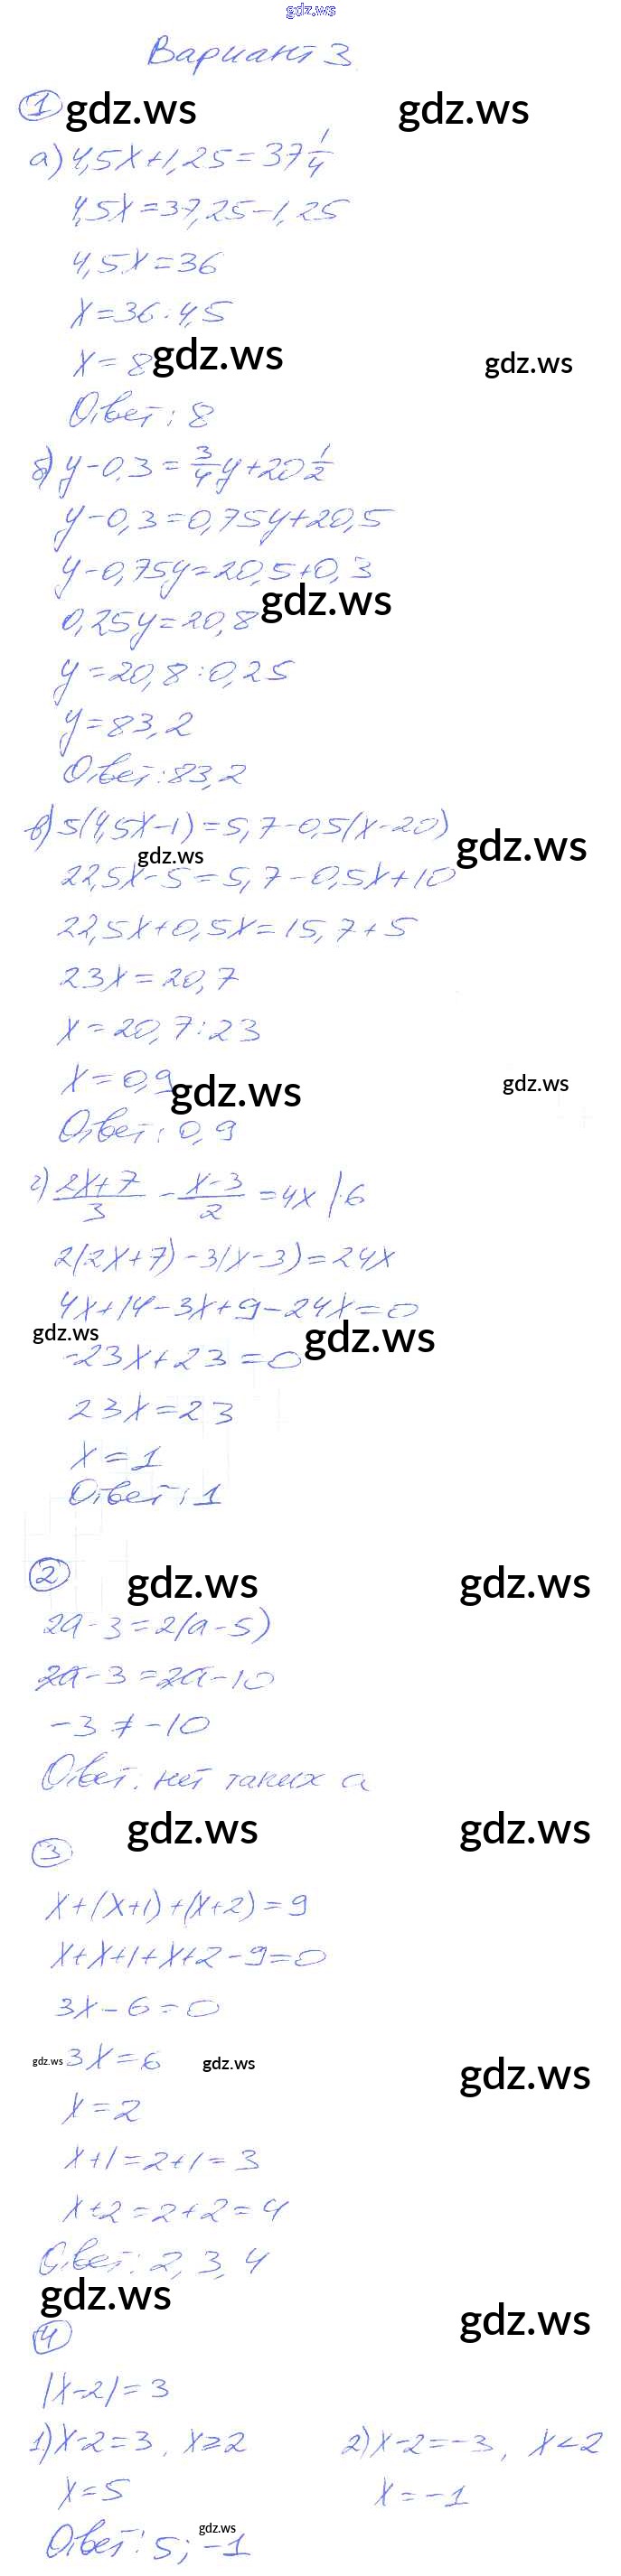 gdz.ws
Вариант 3
1 gdz.ws gdz.ws
а) 4,5x+1,25=37 1/4
4,5x=37,25-1,25
4,5x=36
x=36:4,5
x=8 gdz.ws gdz.ws
Ответ: 8
б) y-0,3=3/4y+20 1/2
y-0,3=0,75y+20,5
y-0,75y=20,5+0,3
0,25y=20,8 gdz.ws
y=20,8:0,25
y=83,2
Ответ: 83,2
в) 5(4,5x-1)=5,7-0,5(x-20)
gdz.ws gdz.ws
22,5x-5=5,7-0,5x+10
22,5x+0,5x=15,7+5
23x=20,7
x=20,7:23
x=0,9 gdz.ws gdz.ws
Ответ: 0,9
г) (2x+7)/3 - (x-3)/2 =4x |·6
2(2x+7)-3(x-3)=24x
4x+14-3x+9-24x=0
gdz.ws gdz.ws
-23x+23=0
23x=23
x=1
Ответ: 1
2 gdz.ws gdz.ws
2a-3=2(a-5)
2a-3=2a-10
-3≠-10
Ответ: нет таких a
gdz.ws gdz.ws
3
x+(x+1)+(x+2)=9
x+x+1+x+2-9=0
3x-6=0
gdz.ws 3x=6 gdz.ws gdz.ws
x=2
x+1=2+1=3
x+2=2+2=4
Ответ: 2, 3, 4
gdz.ws gdz.ws
4
|x-2|=3
1) x-2=3, x⩾2 2) x-2=-3, x<2
x=5 x=-1
Ответ: 5; -1 gdz.ws